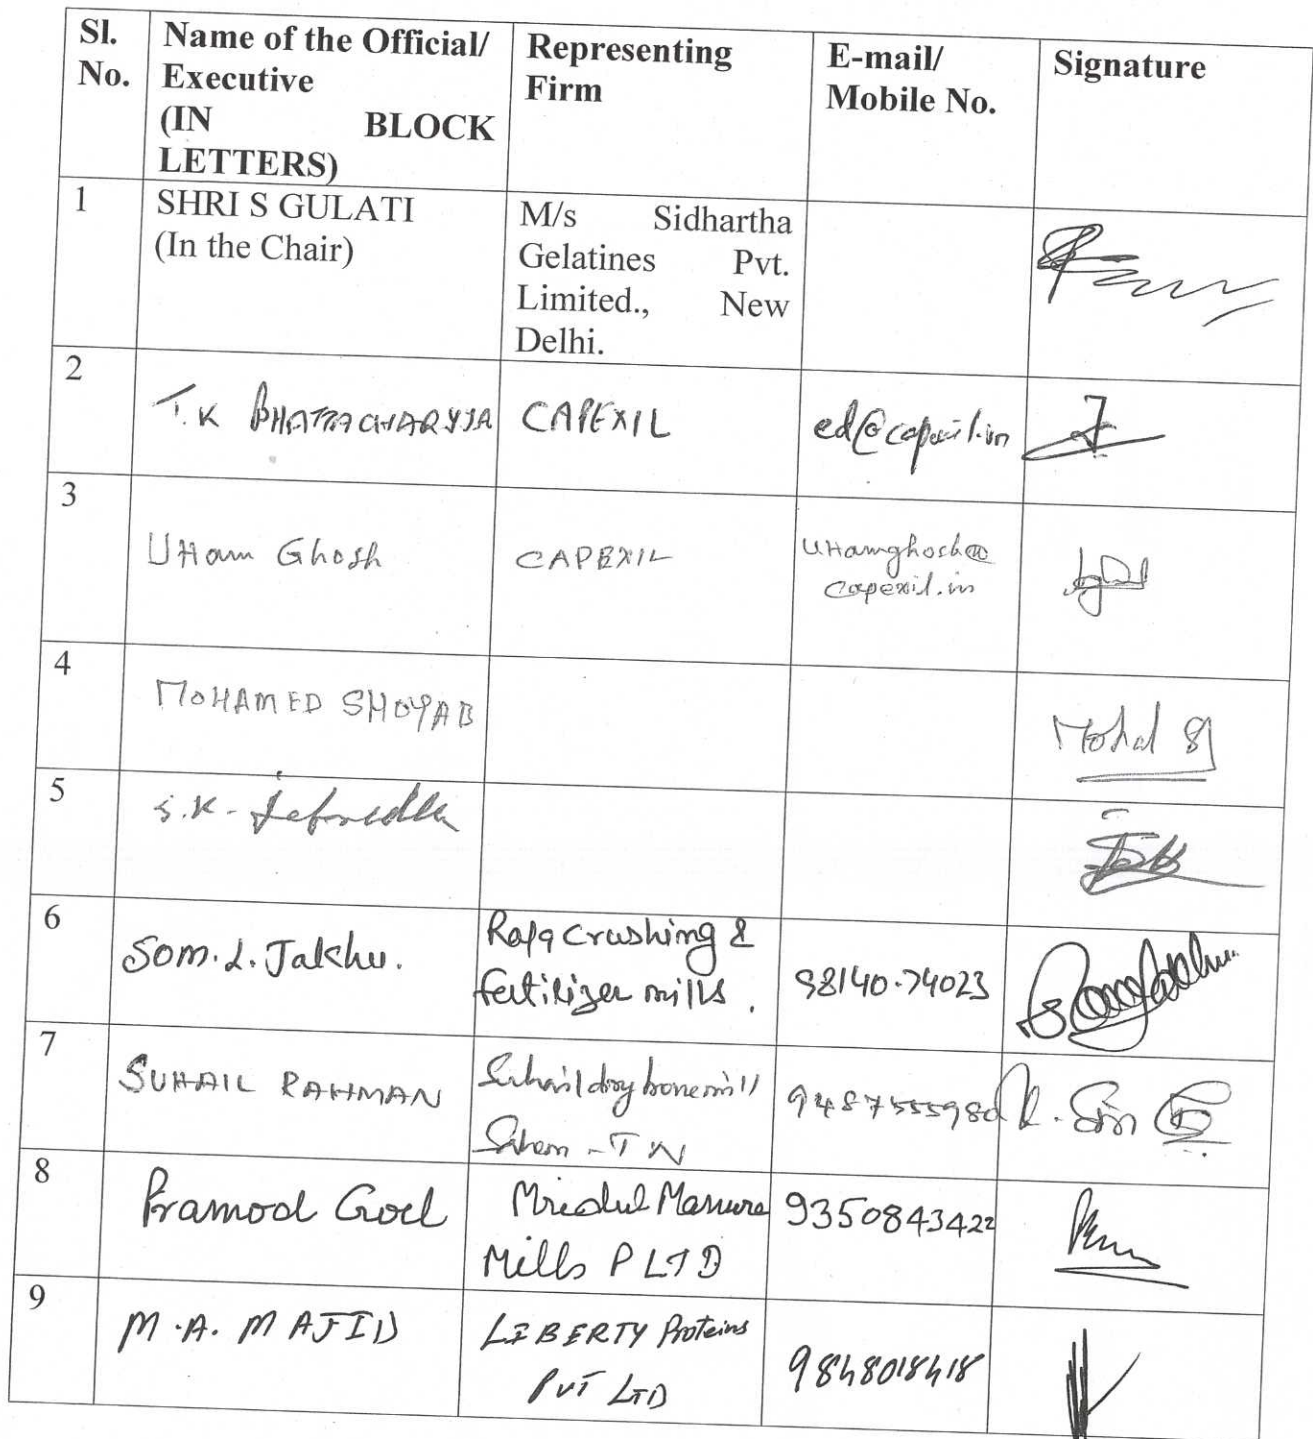 Sl. No.
Name of the Official/
Executive
(IN BLOCK
LETTERS)
Representing
Firm
E-mail/
Mobile No.
Signature
1
SHRI S GULATI
(In the Chair)
M/s Sidhartha
Gelatines Pvt.
Limited., New
Delhi.
2
T.K BHATTACHARYYA
CAPEXIL
ed@capexil.in
3
Uttam Ghosh
CAPEXIL
uttamghosh@
capexil.in
4
MOHAMED SHOYAB
Mohd
5
S.K.
6
Som.L.Jakhu.
Crushing &
fertilizer mills.
98140.74023
7
SUHAIL RAHMAN
Suhail dry bone mill
- TN
8
Pramod Goel
Mridul Manure
Mills P LTD
9350843422
9
M.A. MAJID
LIBERTY Proteins
PVT LTD
9848018418